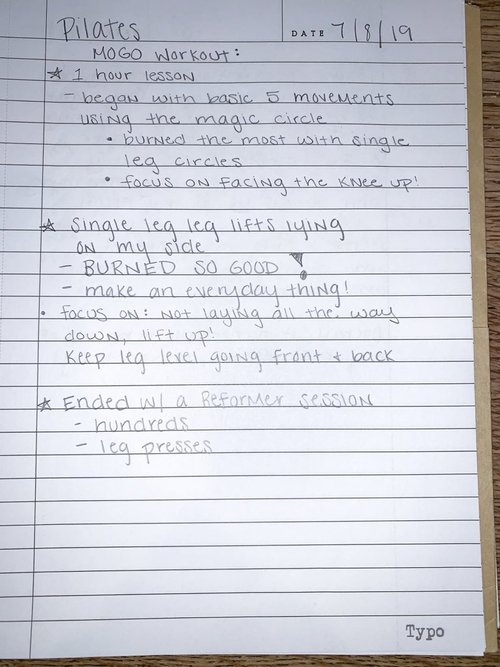 Pilates
DATE 7/8/19
MOGO Workout:
☆ 1 hour lesson
- began with basic 5 movements
using the magic circle
• burned the most with single
leg circles
• focus on facing the knee up!
☆ Single leg leg lifts lying
on my side
- BURNED SO GOOD !
- make an everyday thing!
• focus on: not laying all the way
down, lift up!
Keep leg level going front & back
☆ Ended w/ a Reformer session
- hundreds
- leg presses
Typo